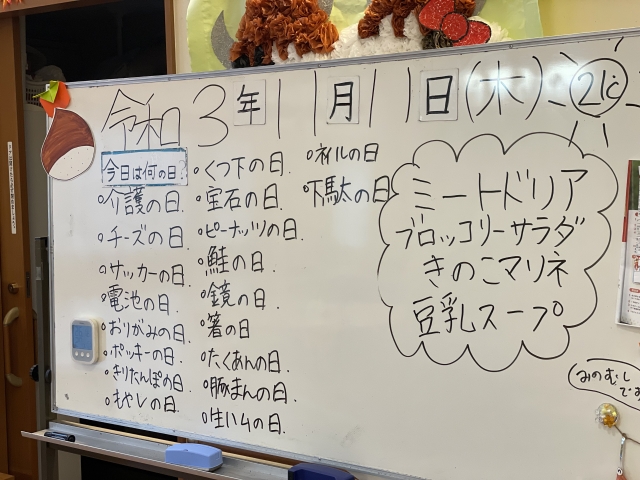 令和3年11月11日(木) 21℃
今日は何の日?
・介護の日.
・チーズの日.
・サッカーの日.
・電池の日.
・おりがみの日.
・ポッキーの日.
・きりたんぽの日.
・もやしの日.
・くつ下の日.
・宝石の日.
・ピーナッツの日.
・鮭の日.
・鏡の日.
・箸の日
・たくあんの日.
・豚まんの日.
・生ハムの日.
・ネイルの日
・下駄の日
ミートドリア
ブロッコリーサラダ
きのこマリネ
豆乳スープ
みのむし